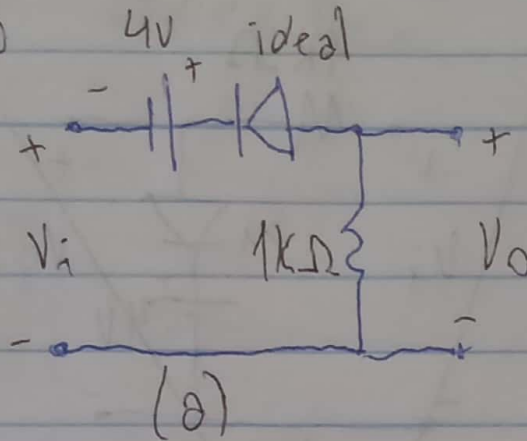 4V ideal
- +
+ +
Vi 1KΩ Vo
- -
(a)